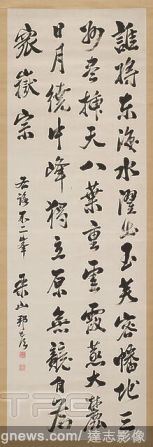 誰將東海水濯出玉芙蓉蟠地三
州盡插天八葉重雲霞蒸大麓
日月繞中峰獨立原無競自為
衆嶽宗
右詠不二峯 栗山邦彦
gnews.com 達志影像